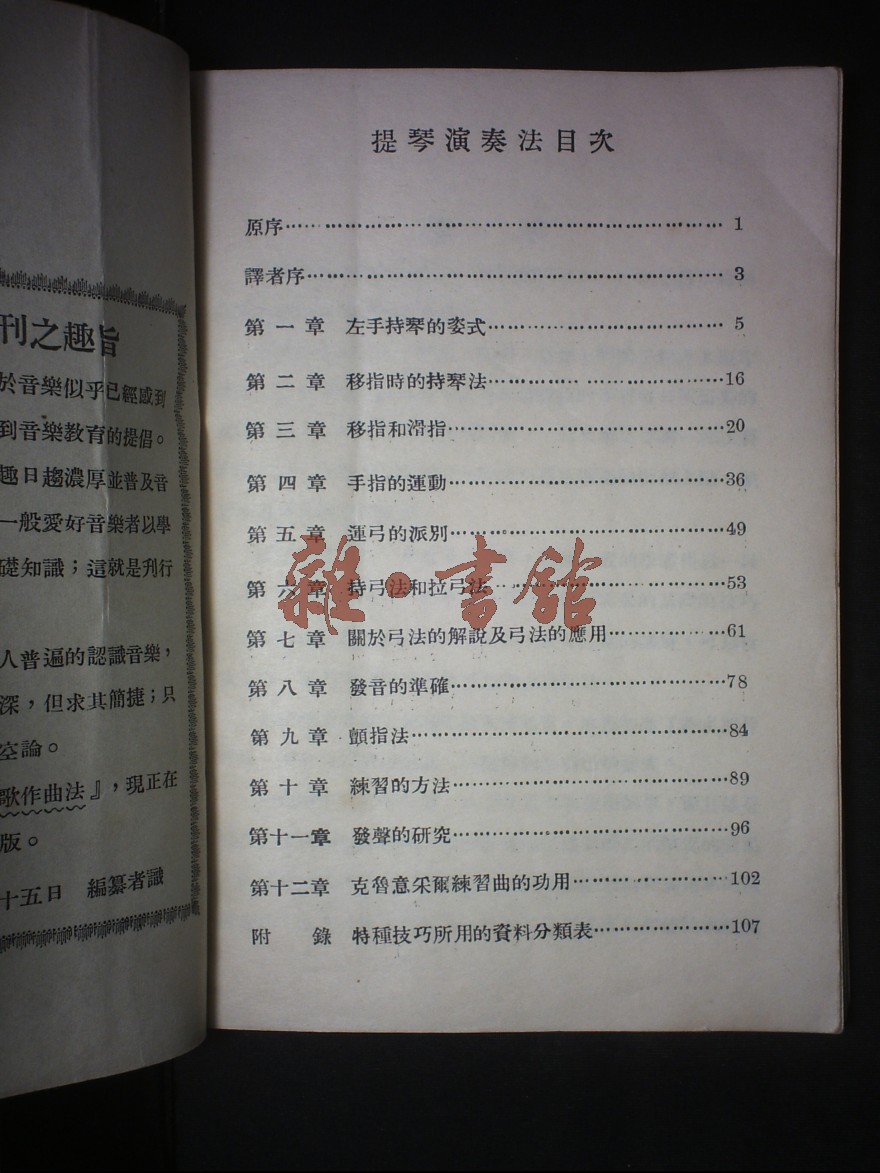 刊之趣旨
於音樂似乎已經感到
到音樂教育的提倡。
趣日趨濃厚並普及音
一般愛好音樂者以學
礎知識；這就是刋行
人普遍的認識音樂，
深，但求其簡捷；只
空論。
歌作曲法』，現正在
版。
十五日　編纂者識
提琴演奏法目次
原序…………………………………………………… 1
譯者序………………………………………………… 3
第一章　左手持琴的姿式…………………………… 5
第二章　移指時的持琴法……………………………16
第三章　移指和滑指…………………………………20
第四章　手指的運動…………………………………36
第五章　運弓的派別…………………………………49
第六章　持弓法和拉弓法……………………………53
第七章　關於弓法的解說及弓法的應用……………61
第八章　發音的準確…………………………………78
第九章　顫指法………………………………………84
第十章　練習的方法…………………………………89
第十一章　發聲的研究………………………………96
第十二章　克魯意采爾練習曲的功用………………102
附　錄　特種技巧所用的資料分類表………………107
雜·書館